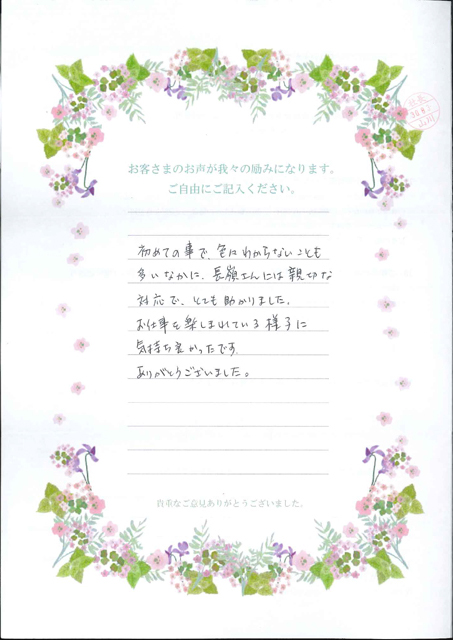 お客さまのお声が我々の励みになります。
ご自由にご記入ください。
初めての事で色々わからないことも
多いなかに、長嶺さんには親切な
対応で、とても助かりました。
お仕事を楽しまれている様子に
気持ち良かったです
ありがとうございました。
貴重なご意見ありがとうございました。